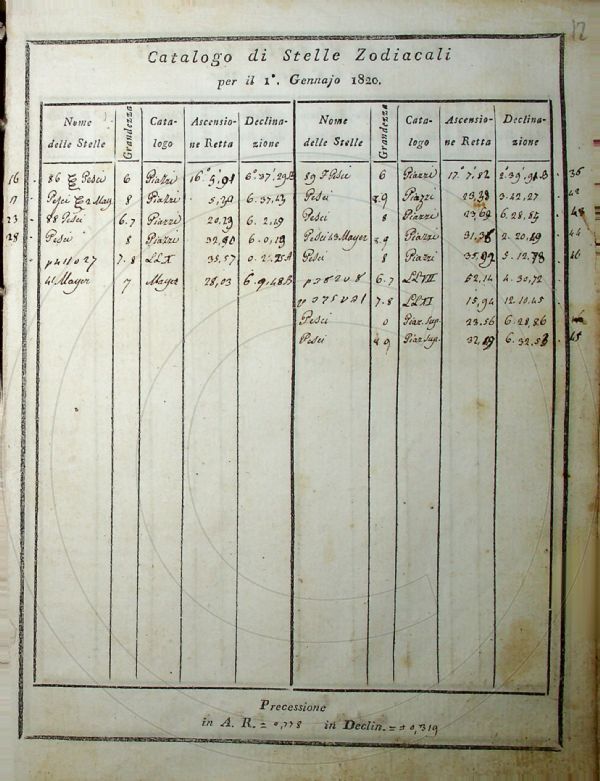 12
Catalogo di Stelle Zodiacali
per il 1°. Gennajo 1820.
Nome delle Stelle Grandezza Cata-logo Ascensio-ne Retta Declina-zione Nome delle Stelle Grandezza Cata-logo Ascensio-ne Retta Declina-zione
16 86 ξ Pesci 6 Piazzi 16° 5',91 6° 37', 29 B 89 f Pesci 6 Piazzi 17° 7,82 2° 39, 91 B 36
17 Pesci 8 Piazzi 5,30 6. 37,43 Pesci 8.9 Piazzi 3. 42,27 42
23 88 Pesci 6.7 Piazzi 20,29 6. 2,49 Pesci 8 Piazzi 23,69 6. 28,84
28 Pesci 8 Piazzi 32,90 6. 0,19 Pesci 43 Mayer 8.9 Piazzi 31,38 2. 20,49 44
7.8 35,57 Pesci 8 Piazzi 35,99 5. 12,78 46
Mayer 7 Mayer 28,03 6. 9,48 B 6.7 52,14 4. 30,72
7.8 15,94 12. 10,45
Pesci Piaz. Sup. 23,56 6. 28,86
Pesci Piaz. Sup. 6. 32,58 45
Precessione
in A. R. = 0,778 in Declin. = ± 0,319